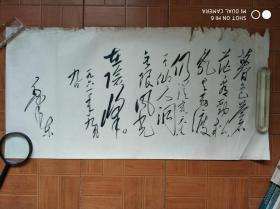 SHOT ON MI 6
MI DUAL CAMERA
暮色蒼
茫看勁松
亂雲飛渡
仍從容天
生一个仙人洞
无限風光
在險峰。
一九六一年九月
九日
毛泽东